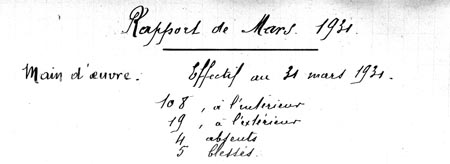 Rapport de Mars. 1931.
Main d'œuvre. Effectif au 31 mars 1931.
108, à l'intérieur
19, à l'extérieur
4 absents
5 blessés.